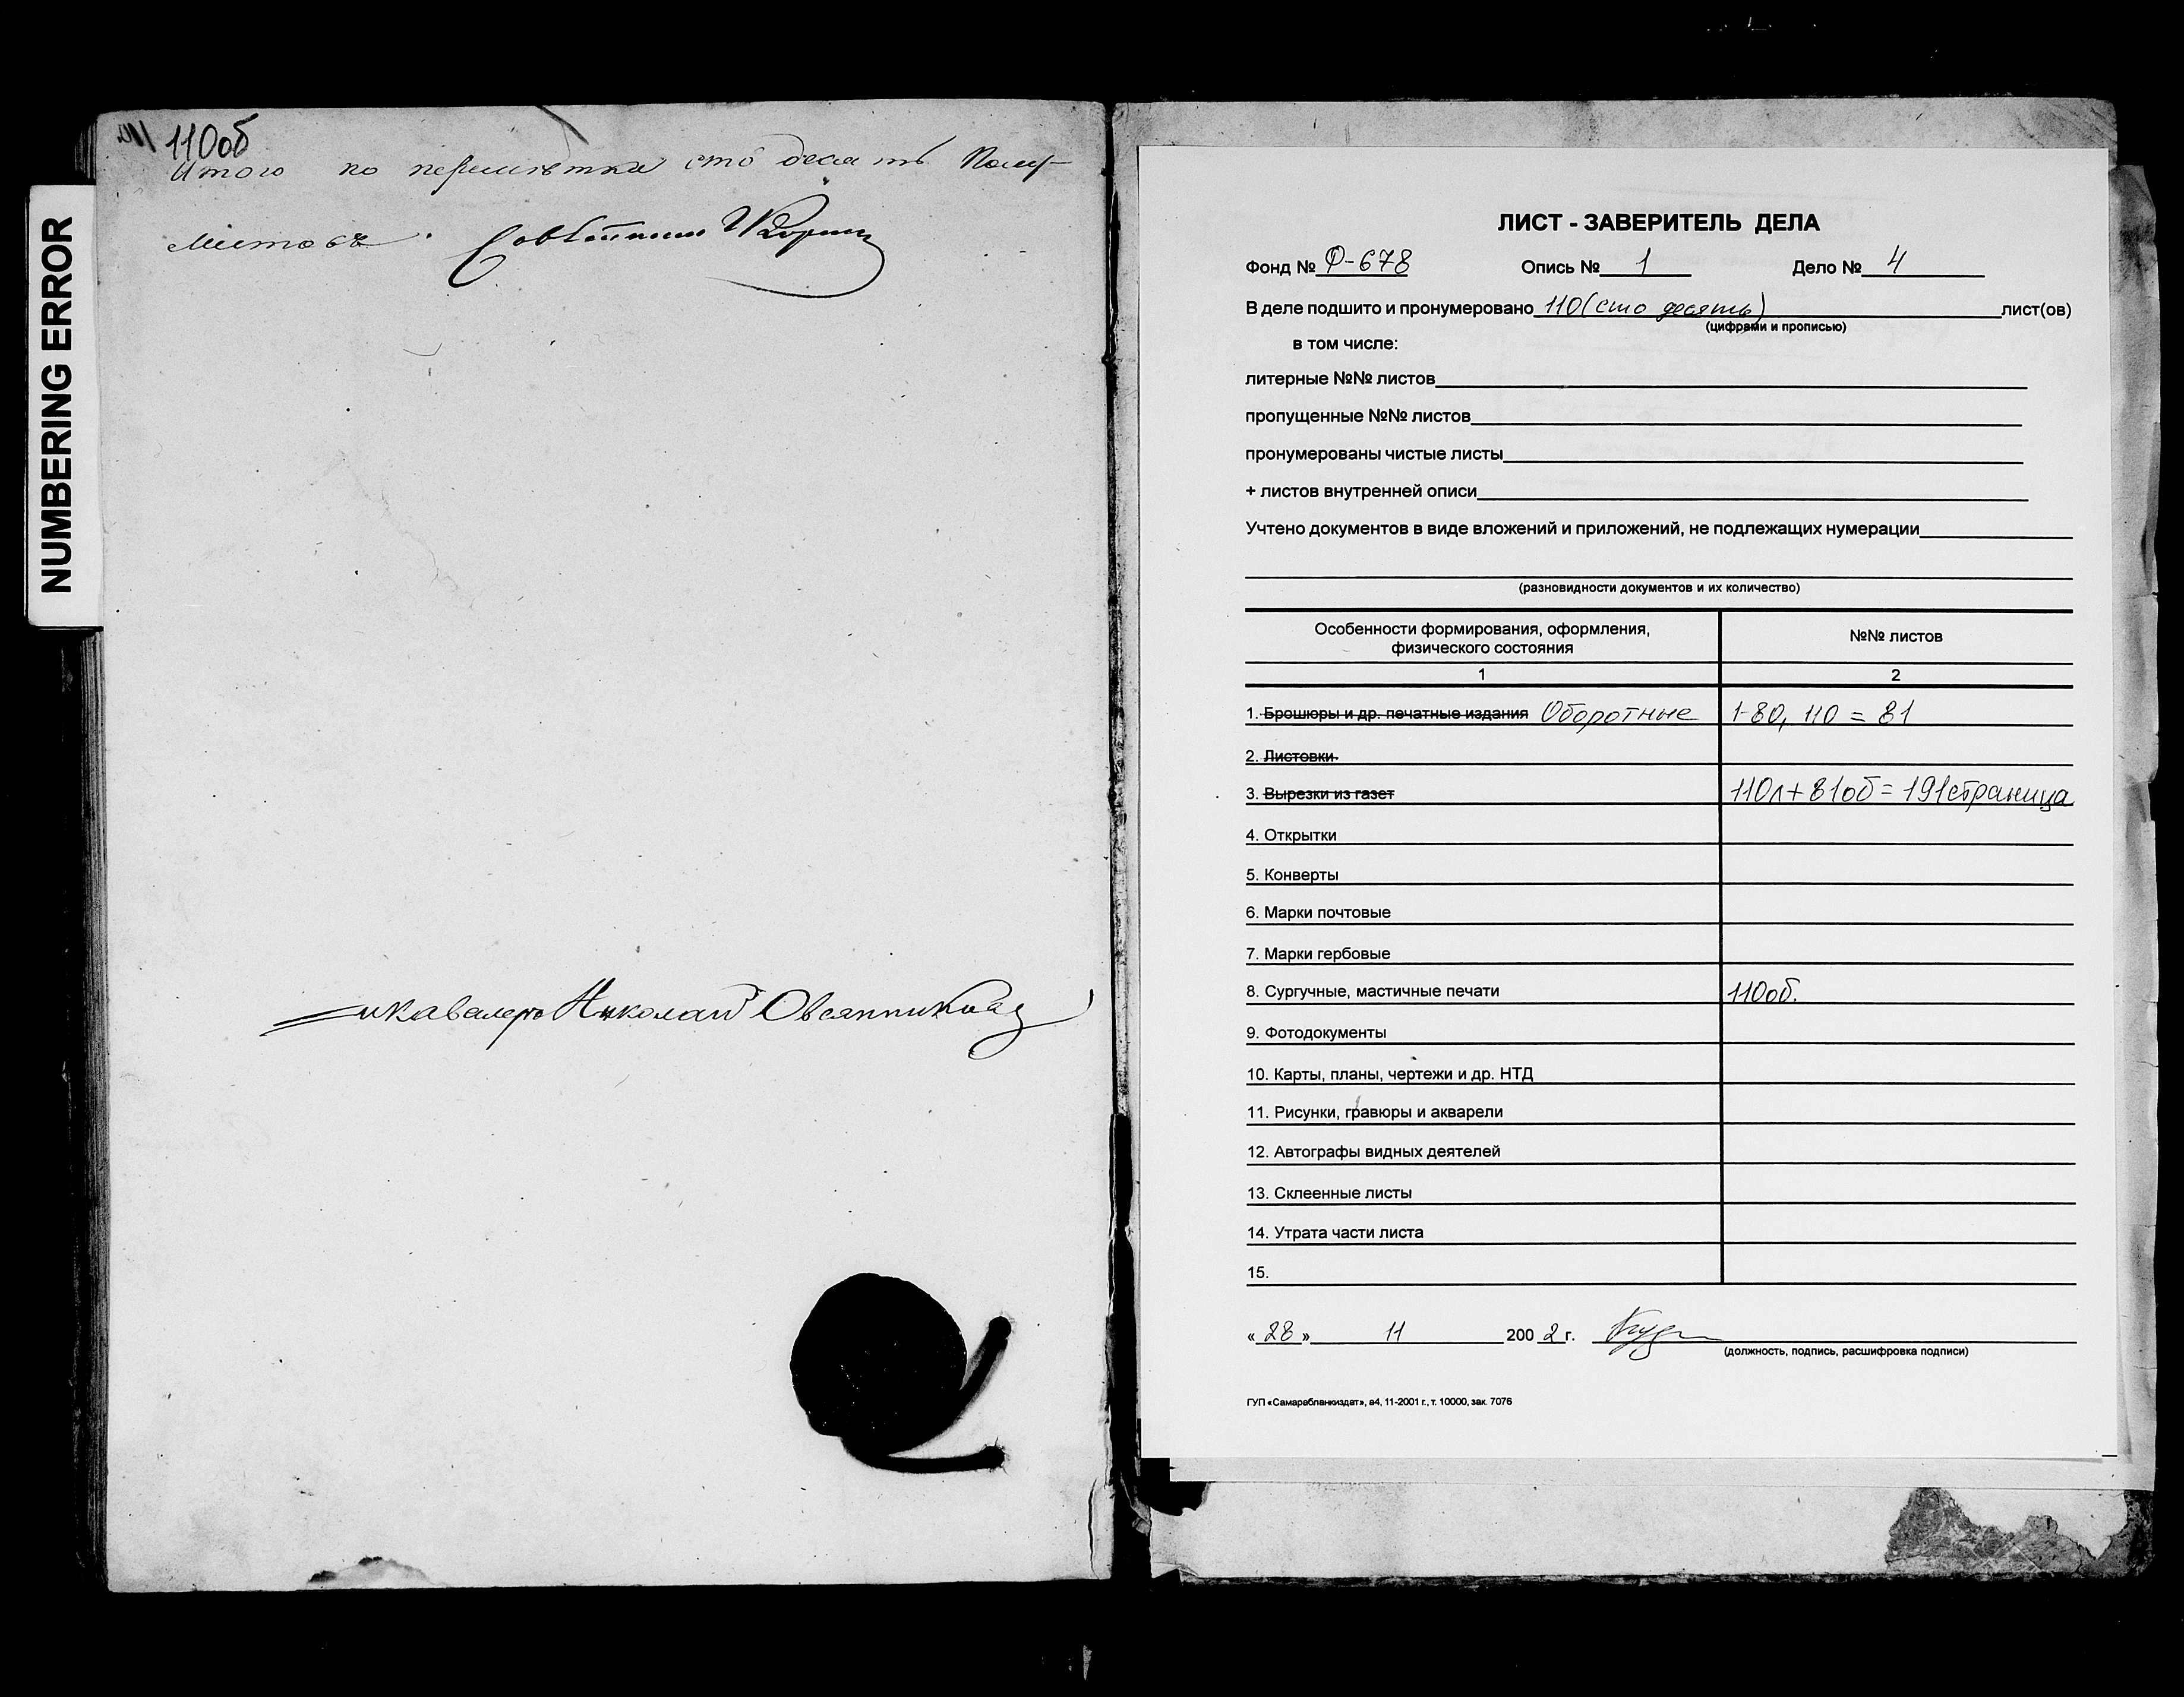 NUMBERING ERROR
110об
Итого по перемѣткѣ сто десять Полу-
листовъ.
Совѣтникъ
и кавалеръ Николай Овсянниковъ
ЛИСТ - ЗАВЕРИТЕЛЬ ДЕЛА
Фонд № Ф-678 Опись № 1 Дело № 4
В деле подшито и пронумеровано 110 (сто десять) лист(ов)
(цифрами и прописью)
в том числе:
литерные №№ листов
пропущенные №№ листов
пронумерованы чистые листы
+ листов внутренней описи
Учтено документов в виде вложений и приложений, не подлежащих нумерации
(разновидности документов и их количество)
Особенности формирования, оформления, физического состояния №№ листов
1 2
1. Брошюры и др. печатные издания Оборотные 1-80, 110 = 81
2. Листовки
3. Вырезки из газет 110л + 81об = 191 страница
4. Открытки
5. Конверты
6. Марки почтовые
7. Марки гербовые
8. Сургучные, мастичные печати 110об.
9. Фотодокументы
10. Карты, планы, чертежи и др. НТД
11. Рисунки, гравюры и акварели
12. Автографы видных деятелей
13. Склеенные листы
14. Утрата части листа
15.
« 28 » 11 2002 г.
(должность, подпись, расшифровка подписи)
ГУП «Самарабланкиздат», а4, 11-2001 г., т. 10000, зак. 7076